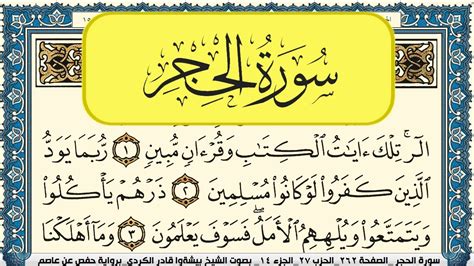 سُورَةُ الحِجر
الٓرۚ تِلْكَ ءَايَٰتُ ٱلْكِتَٰبِ وَقُرْءَانٍ مُّبِينٍ ١ رُّبَمَا يَوَدُّ
ٱلَّذِينَ كَفَرُوا۟ لَوْ كَانُوا۟ مُسْلِمِينَ ٢ ذَرْهُمْ يَأْكُلُوا۟
وَيَتَمَتَّعُوا۟ وَيُلْهِهِمُ ٱلْأَمَلُۖ فَسَوْفَ يَعْلَمُونَ ٣ وَمَآ أَهْلَكْنَا
سورة الحجر _ الصفحة ٢٦٢_ الحزب ٢٧_ الجزء ١٤ _ بصوت الشيخ بيشةوا قادر الكردي_ برواية حفص عن عاصم